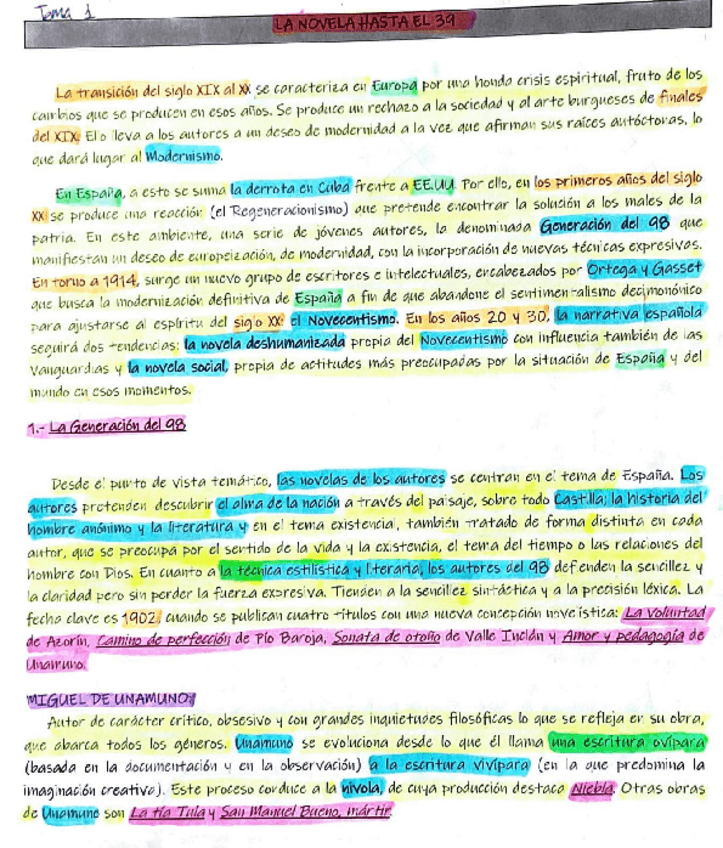 Tema 1
LA NOVELA HASTA EL 39
La transición del siglo XIX al XX se caracteriza en Europa por una honda crisis espiritual, fruto de los
cambios que se producen en esos años. Se produce un rechazo a la sociedad y al arte burgueses de finales
del XIX. Ello lleva a los autores a un deseo de modernidad a la vez que afirman sus raíces autóctonas, lo
que dará lugar al Modernismo.
En España, a esto se suma la derrota en Cuba frente a EE.UU. Por ello, en los primeros años del siglo
XX se produce una reacción (el Regeneracionismo) que pretende encontrar la solución a los males de la
patria. En este ambiente, una serie de jóvenes autores, la denominada Generación del 98 que
manifiestan un deseo de europeización, de modernidad, con la incorporación de nuevas técnicas expresivas.
En torno a 1914, surge un nuevo grupo de escritores e intelectuales, encabezados por Ortega y Gasset
que busca la modernización definitiva de España a fin de que abandone el sentimentalismo decimonónico
para ajustarse al espíritu del siglo XX: el Novecentismo. En los años 20 y 30, la narrativa española
seguirá dos tendencias: la novela deshumanizada propia del Novecentismo con influencia también de las
Vanguardias y la novela social, propia de actitudes más preocupadas por la situación de España y del
mundo en esos momentos.
1.- La Generación del 98
Desde el punto de vista temático, las novelas de los autores se centran en el tema de España. Los
autores pretenden descubrir el alma de la nación a través del paisaje, sobre todo Castilla; la historia del
hombre anónimo y la literatura y en el tema existencial, también tratado de forma distinta en cada
autor, que se preocupa por el sentido de la vida y la existencia, el tema del tiempo o las relaciones del
hombre con Dios. En cuanto a la técnica estilística y literaria, los autores del 98 defienden la sencillez y
la claridad pero sin perder la fuerza expresiva. Tienden a la sencillez sintáctica y a la precisión léxica. La
fecha clave es 1902, cuando se publican cuatro títulos con una nueva concepción novelística: La voluntad
de Azorín, Camino de perfección de Pío Baroja, Sonata de otoño de Valle Inclán y Amor y pedagogía de
Unamuno.
MIGUEL DE UNAMUNO
Autor de carácter crítico, obsesivo y con grandes inquietudes filosóficas lo que se refleja en su obra,
que abarca todos los géneros. Unamuno se evoluciona desde lo que él llama una escritura ovípara
(basada en la documentación y en la observación) a la escritura vivípara (en la que predomina la
imaginación creativa). Este proceso conduce a la nivola, de cuya producción destaca Niebla. Otras obras
de Unamuno son La tía Tula y San Manuel Bueno, mártir.